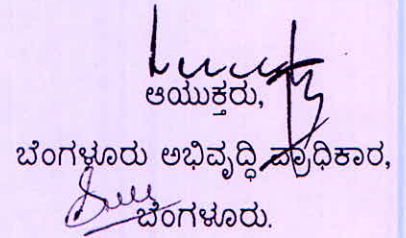 ಆಯುಕ್ತರು,
ಬೆಂಗಳೂರು ಅಭಿವೃದ್ಧಿ ಪ್ರಾಧಿಕಾರ,
ಬೆಂಗಳೂರು.